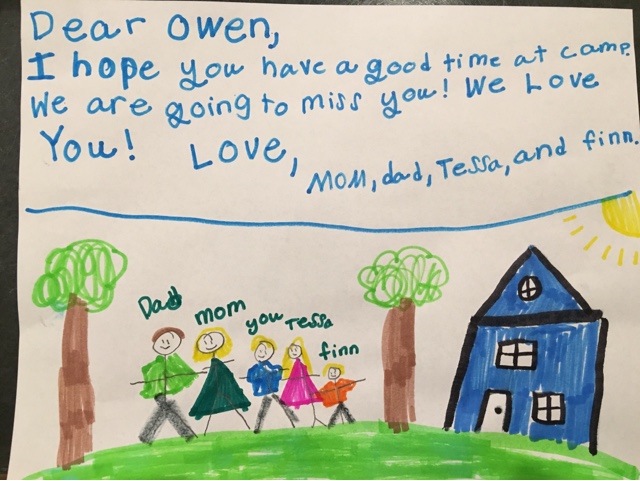 Dear owen,
I hope you have a good time at camp.
We are going to miss you! We Love
You! Love,
Mom, dad, Tessa, and finn.
Dad mom you Tessa
finn